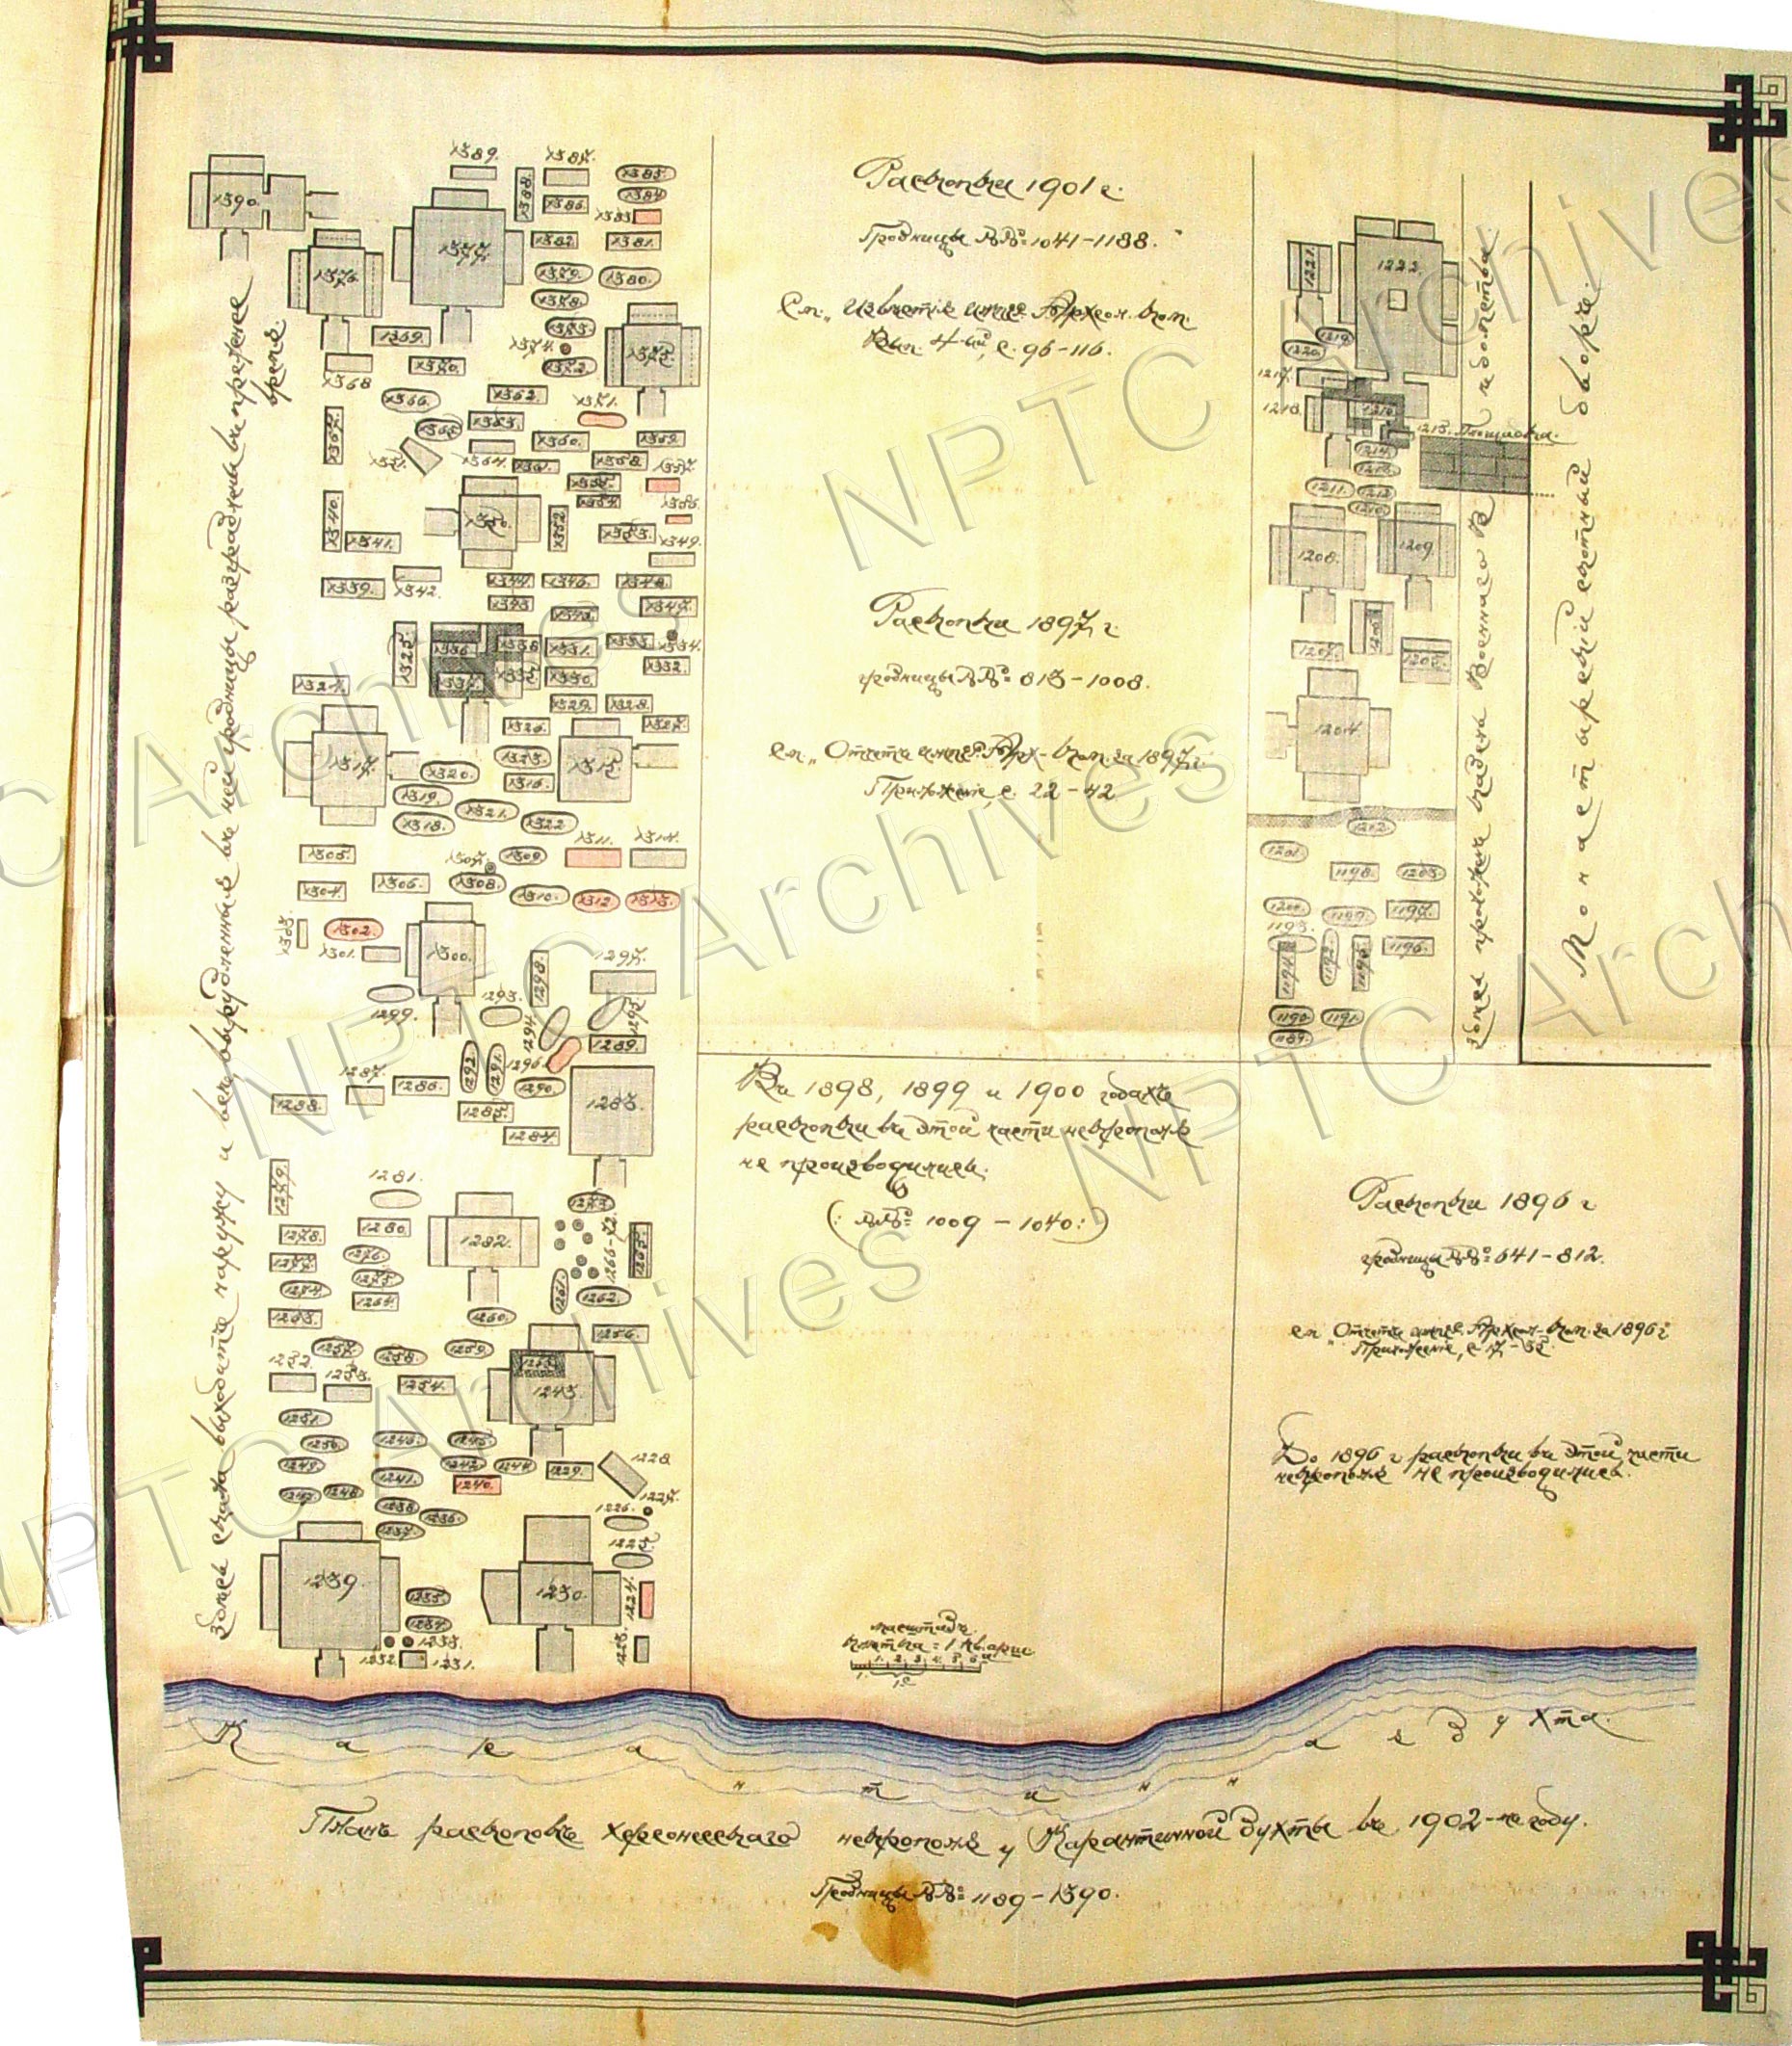 Раскопки 1901 г.
Гробницы №№ 1041-1188.
См. „Извѣстія импер. Археол. Ком.
Вып. 4-ый, с. 96-116.
Раскопки 1897 г.
гробницы №№ 813-1008.
См. „Отчетъ импер. Арх. Ком. за 1897 г.
Приложеніе, с. 22-42
Въ 1898, 1899 и 1900 годахъ
раскопки въ этой части некрополя
не производились.
(: №№ 1009 - 1040 :)
Раскопки 1896 г
гробницы №№ 641-812.
См „Отчетъ импер. Археол. Ком. за 1896 г
Приложеніе, с.
До 1896 г раскопки въ этой части
некрополя не производились.
Здѣсь скала выходитъ наружу и всѣ вырубленныя въ ней гробницы разграблены въ прежнее
время.
Монастырскій скотный дворъ.
1390.
1389.
1387.
1385.
1384
1388.
1386.
1383
1382
1381.
1377.
1376
1379.
1380.
1378.
1373.
1374.
1372.
1375.
1369.
1370.
1368
1366.
1362.
1371.
1367.
1365
1363.
1360.
1359.
1364.
1361.
1358.
1357.
1350.
1352.
1353.
1349.
1340.
1341.
1339.
1342.
1344.
1346.
1348
1343
1347.
1325.
1336
1338
1331.
1333
1334.
1337
1335
1330
1332.
1324.
1329.
1328.
1326.
1327.
1317.
1323.
1315
1320.
1316.
1319.
1321.
1318.
1322
1305.
1307.
1309.
1311.
1314.
1304.
1306.
1308.
1310.
1312
1313.
1303
1302.
1301.
1300.
1298.
1297.
1299.
1293.
1294
1295
1292
1291.
1296.
1289.
1287.
1286.
1290.
1288.
1285.
1283.
1284.
1279.
1281.
1273.
1280.
1278.
1282.
1266-72.
1265.
1276.
1277
1275.
1274
1264.
1261.
1262.
1263.
1260.
1256.
1257.
1258.
1259.
1252.
1253.
1254.
1255.
1243.
1251.
1250.
1246.
1245.
1249.
1242
1244
1229.
1228.
1241.
1240.
1247.
1248
1238
1227.
1226.
1236.
1237.
1225.
1239.
1230.
1224.
1235.
1234.
1233.
1232
1231.
1223.
1221.
1222.
1219.
1220.
1217.
1218.
1216.
1215. Площадка.
1214.
1213.
1211.
1212
1210
1208.
1209.
1206
1207.
1205.
1204.
1202.
1201.
1198.
1203.
1200.
1199.
1197.
1193.
1196.
1194
1192
1195
1190.
1191.
1189.
Масштабъ.
1 2 3 4 5 6
Карантинная бухта.
Планъ раскопокъ Херсонесскаго некрополя у Карантинной бухты въ 1902-мъ году.
Гробницы №№ 1189-1390.
NPTC Archives
NPTC Archives
NPTC Archives
NPTC Archives